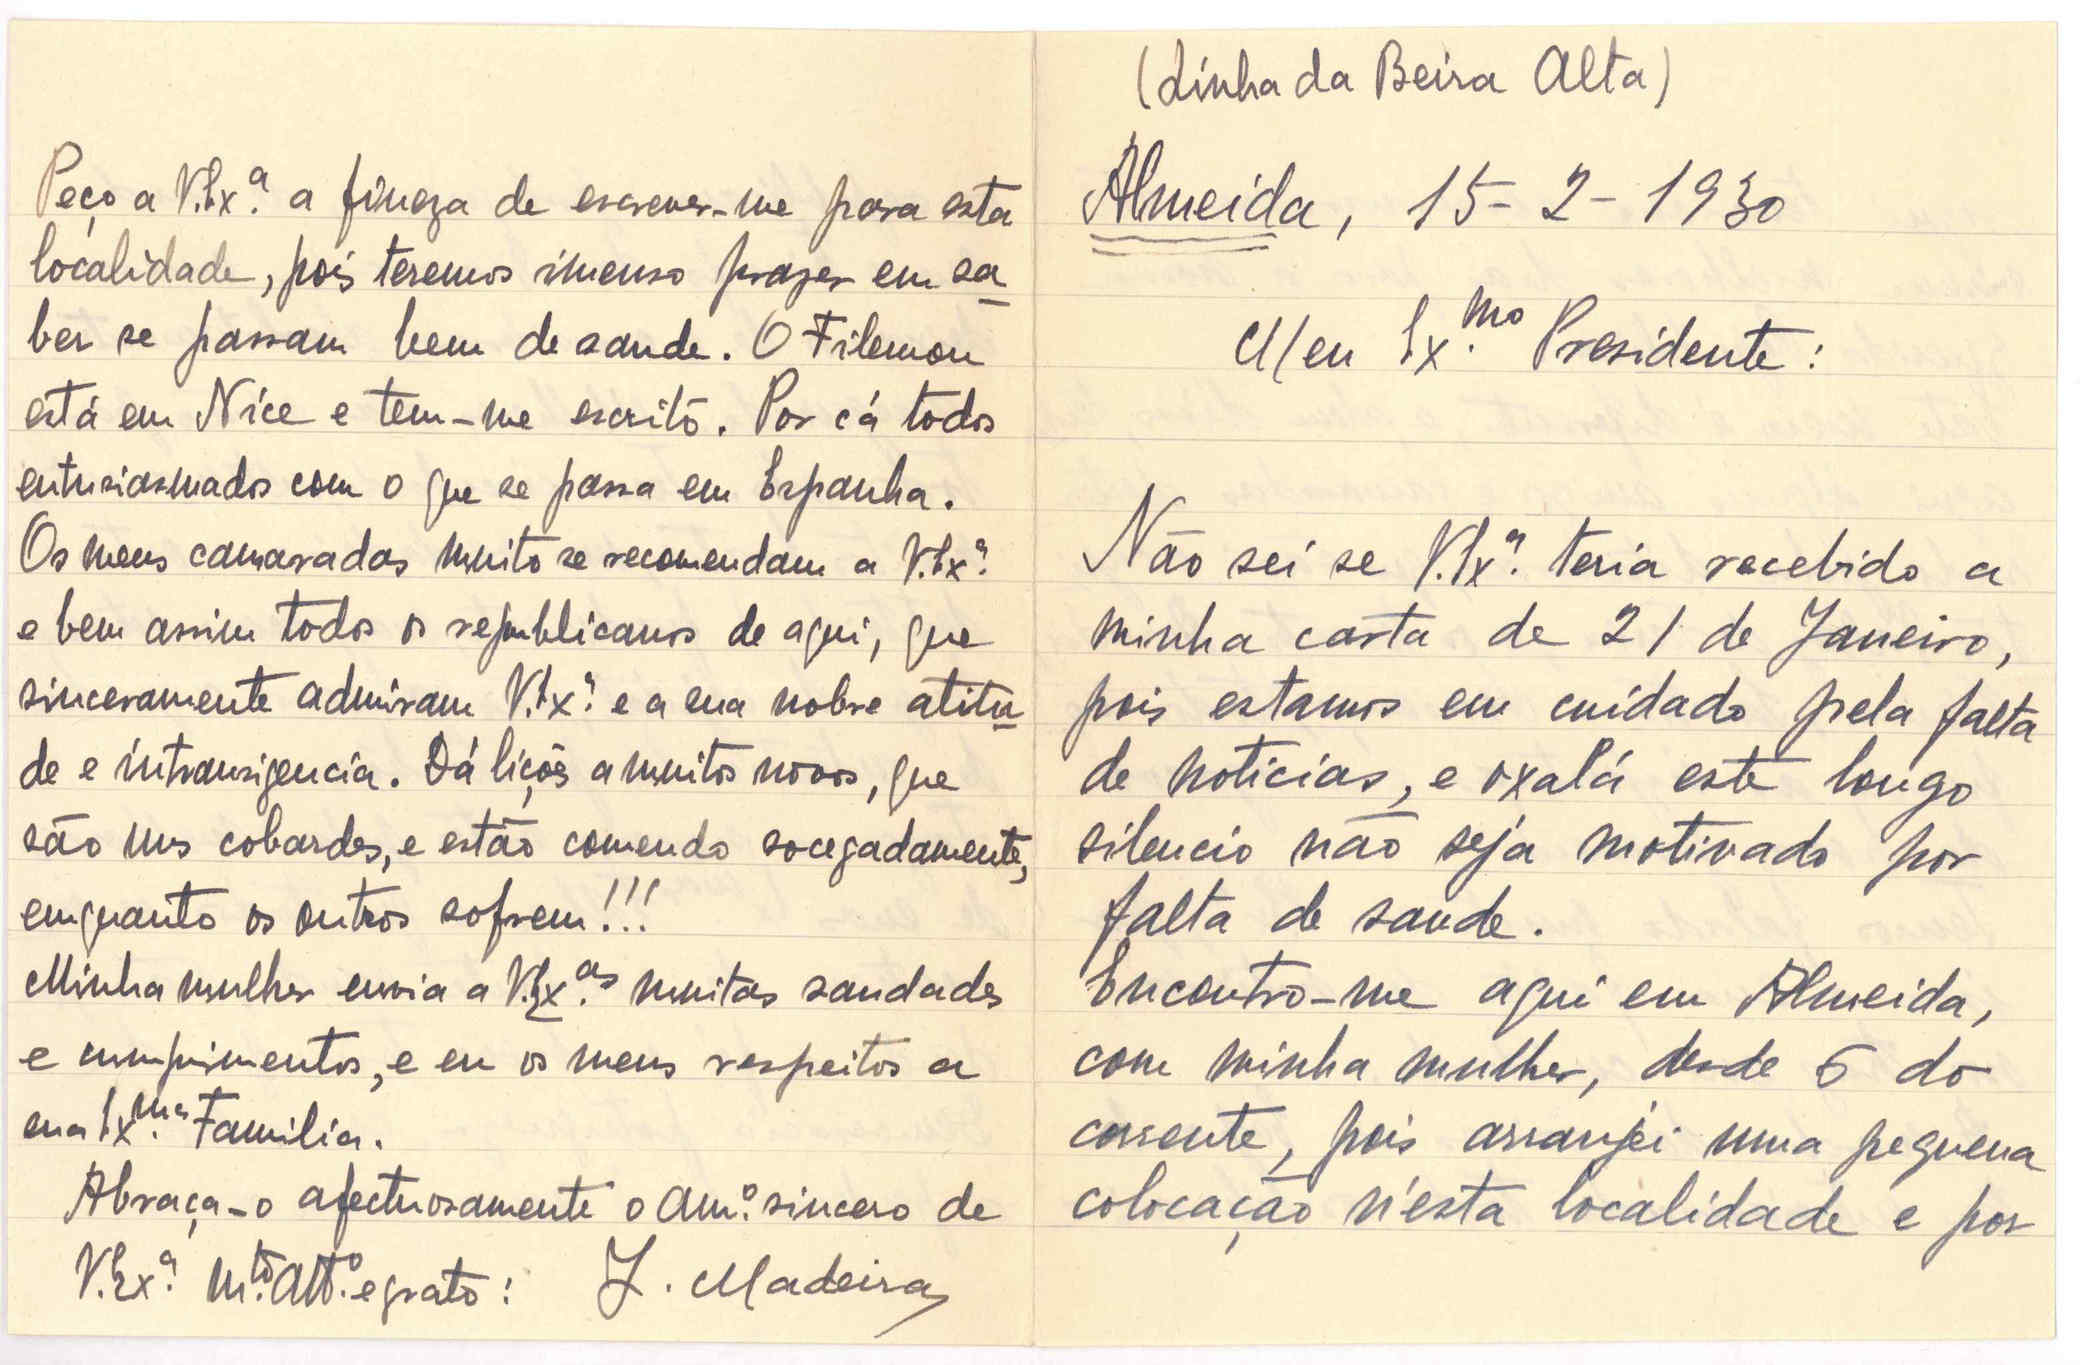 (Linha da Beira Alta)
Almeida, 15-2-1930
Meu Ex.mo Presidente:
Não sei se V.Ex.ª teria recebido a
minha carta de 21 de Janeiro,
pois estamos em cuidado pela falta
de noticias, e oxalá este longo
silencio não seja motivado por
falta de saude.
Encontro-me aqui em Almeida,
com minha mulher, desde 6 do
corrente, pois arranjei uma pequena
colocação n'esta localidade e por
Peço a V.Ex.ª a fineza de escrever-me para esta
localidade, pois teremos imenso prazer em sa
ber se passam bem de saude. O Filemon
está em Nice e tem-me escrito. Por cá todos
entusiasmados com o que se passa em Espanha.
Os meus camaradas muito se recomendam a V.Ex.ª
e bem assim todos os republicanos de aqui, que
sinceramente admiram V.Ex.ª e a sua nobre atitu
de e intransigencia. Dá lições a muitos novos, que
são uns cobardes, e estão comendo socegadamente,
emquanto os outros sofrem!!!
Minha mulher envia a V.Ex.as muitas saudades
e cumprimentos, e eu os meus respeitos a
sua Ex.ma Familia.
Abraça-o afectuosamente o am.º sincero de
V.Ex.ª m.to att.º e grato: J. Madeira